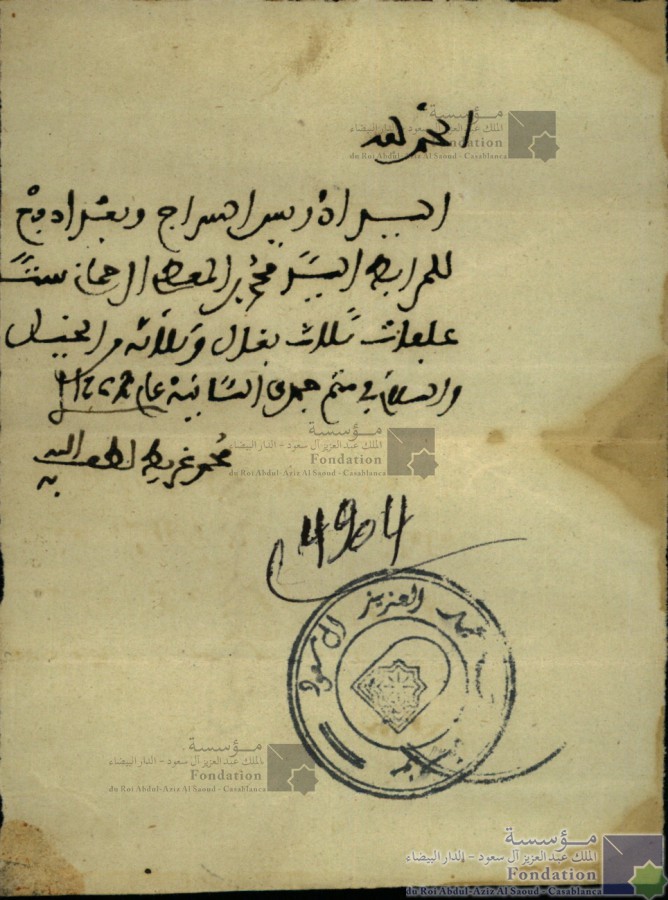 الحمد لله
مؤسسة
الملك عبد العزيز آل سعود - الدار البيضاء
Fondation
du Roi Abdul-Aziz Al Saoud - Casablanca
السراج وبعد ادفع
للمرابط السيد محمد بن المعطي
علفات ثلاث بغال وثلاثة من الخيل
والسلام في متم جمدى الثانية عام
محمد غريط لطف الله
به
مؤسسة
الملك عبد العزيز آل سعود - الدار البيضاء
Fondation
du Roi Abdul-Aziz Al Saoud - Casablanca
4904
عبد العزيز السعود
مؤسسة
الملك عبد العزيز آل سعود - الدار البيضاء
Fondation
du Roi Abdul-Aziz Al Saoud - Casablanca
مؤسسة
الملك عبد العزيز آل سعود - الدار البيضاء
Fondation
du Roi Abdul-Aziz Al Saoud - Casablanca